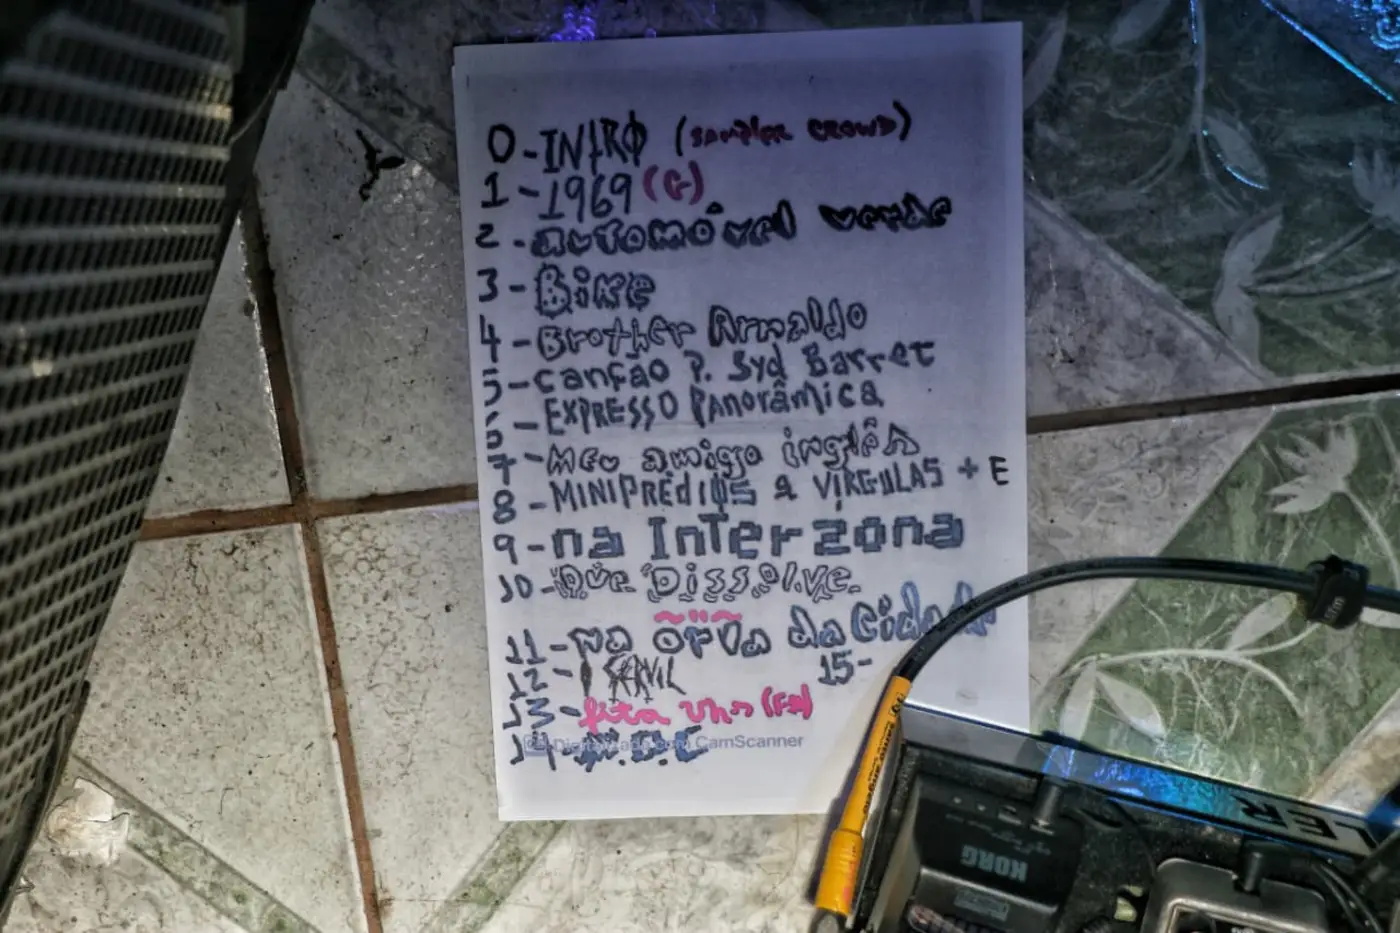 0-INTRO (sampler crowd)
1-1969 (G)
2-automóvel verde
3-Bike
4-Brother Arnaldo
5-canção P. Syd Barret
6-EXPRESSO PANORÂMICA
7-Meu amigo inglês
8-MINIPRÉDIOS & VÍRGULAS + E
9-na InTerzona
10-Que Dissolve
11-na órla da Cidade
12-
13-fita vhs
14-M.D.C
15-
Digitalizado com CamScanner
KORG
LER